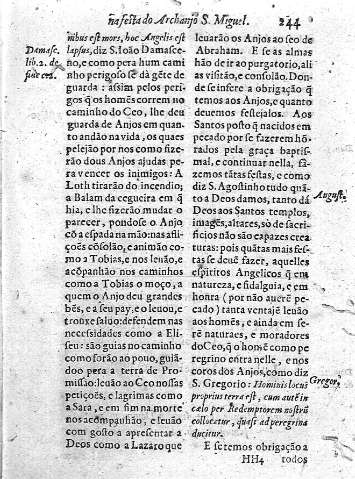 na festa do Archanjo S. Miguel. 244
nibus est mors, hoc Angelis est
lapsus, diz S. Ioão Damasce-
no, e como pera hum cami
nho perigoso se dà gẽte de
guarda: assim pelos peri-
gos q̃ os homẽs correm no
caminho do Ceo, lhe deu
guarda de Anjos em quan-
to andão na vida, os quaes
pelejão por nos como fize-
rão dous Anjos ajudas pe-
ra vencer os inimigos: A
Loth tirarão do incendio;
a Balam da cegueira em q̃
hia, e lhe fizerão mudar o
parecer, pondose o Anjo
cõ a espada na mão: nas afli-
ções cõsolão, e animão co-
mo a Tobias, e nos levão, e
acõpanhão nos caminhos
como a Tobias o moço, a
quem o Anjo deu grandes
bẽs, e a seu pay, e o levou, e
trouxe salvo: defendem nas
necessidades como a Eli-
seu: são guias no caminho
como forão ao povo, guiã-
doo pera a terra de Pro-
missão: levão ao Ceo nossas
petições, e lagrimas como
a Sara, e em fim na morte
nos acompanhão, e levão
com gosto a apresentar a
Deos como a Lazaro que
Damasc.
lib. 2. de
fide
levarão os Anjos ao seo de
Abraham. E se as almas
hão de ir ao purgatorio, ali
as visitão, e consolão. Don-
de se infere a obrigação q̃
temos aos Anjos, e quanto
devemos festejalos. Aos
Santos posto q̃ nacidos em
pecado por se fazerem hõ-
rados pela graça baptis-
mal, e continuar nella, fa-
zemos tãtas festas, e como
diz S. Agostinho tudo quã-
to a Deos damos, tanto dá
Deos aos Santos templos,
imagẽs, altares, sò de sacri-
ficios não são capazes crea
turas: pois quãtas mais fes-
tas se deuẽ fazer, aquelles
espiritos Angelicos q̃ em
natureza, e fidalguia, e em
honra (por não averẽ pe-
cado) tanta ventajẽ levão
aos homẽs, e ainda em se-
rẽ naturaes, e moradores
do Ceo, q̃ o homẽ como pe
regrino entra nelle, e nos
coros dos Anjos, como diz
S. Gregorio: Hominis locus
proprius terra est, cum autẽ in
cælo per Redemptorem nostrũ
collocatur, quasi ad peregrina
ducitur.
E se temos obrigação a
August.
Gregor.
HH4 todos